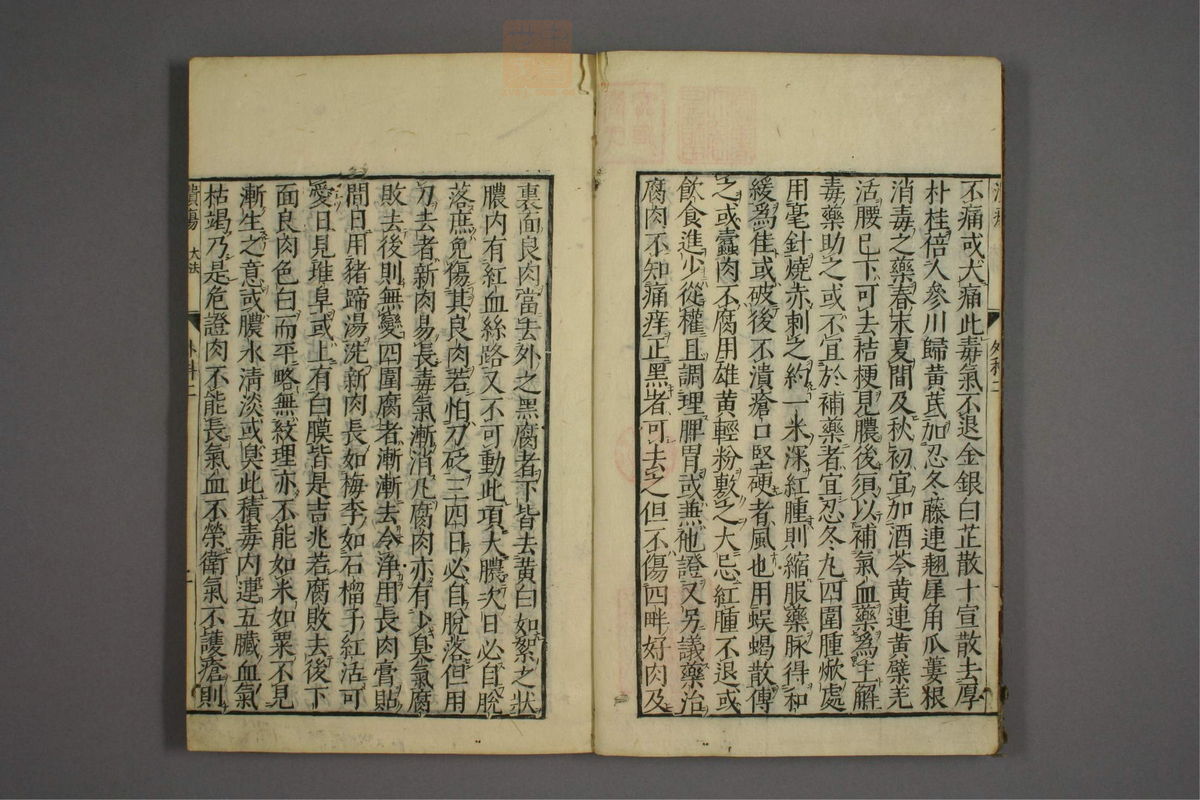 不痛或大痛此毒氣不退金銀白芷散十宣散去厚
朴桂倍人參川歸黃芪加忍冬藤連翹犀角瓜蔞根
消毒之藥春末夏間及秋初宜加酒芩黃連黃蘗羌
活腰已下可去桔梗見膿後須以補氣血藥爲主解
毒藥助之或不宜於補藥者宜忍冬丸四圍腫焮處
用毫針燒赤刺之約一米深紅腫則縮服藥脉得和
緩爲佳或破後不潰瘡口堅硬者風也用蜈蝎散傅
之或蠹肉不腐用雄黃輕粉敷之大忌紅腫不退或
飲食進少從權且調理脾胃或兼他證又另議藥治
腐肉不知痛痒正黑者可去之但不傷四畔好肉及
裏面良肉當去外之黑腐者下皆去黃白如絮之狀
膿內有紅血絲路又不可動此項大膿次日必自脫
落庶免傷其良肉若怕刀砭三四日必自脫落但用
刀去者新肉易長毒氣漸消凢腐肉亦有少臭氣腐
敗去後則無變四圍腐者漸漸去令淨用長肉膏貼
間日用豬蹄湯洗新肉長如梅李如石榴子紅活可
愛日見堆阜或上有白膜皆是吉兆若腐敗去後下
面良肉色白而平略無紋理亦不能如米如粟不見
漸生之意或膿水清淡或臭此積毒內連五臟血氣
枯竭乃是危證肉不能長氣血不榮衛氣不護瘡則
潰瘍 大法
外科二